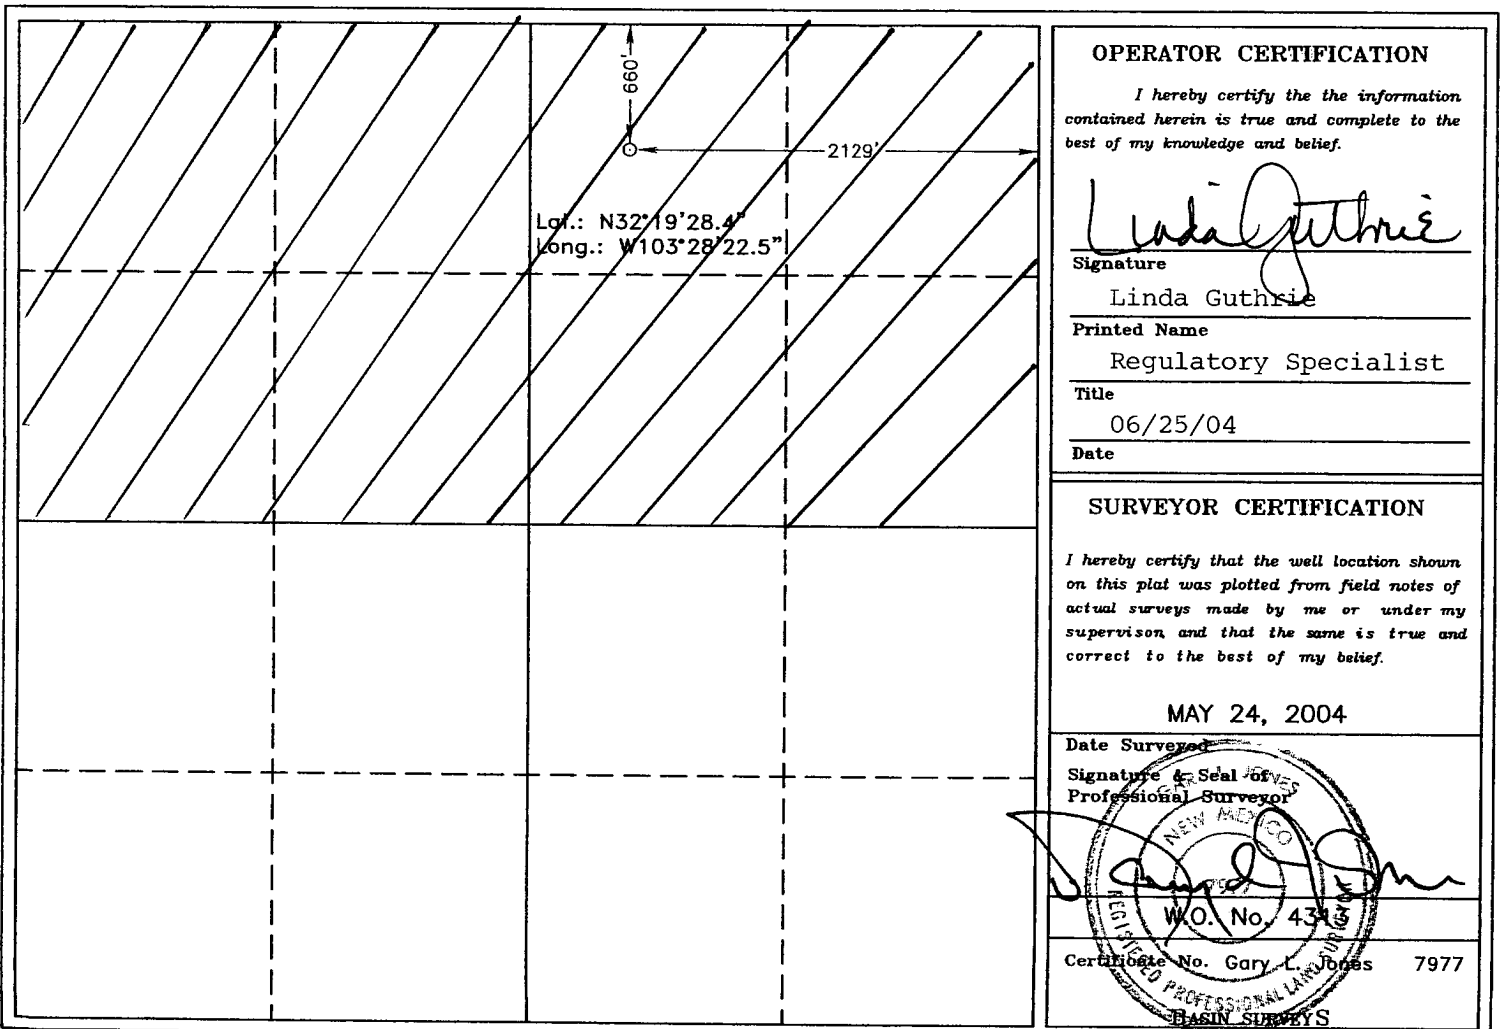 660'
2129'
Lat.: N32°19'28.4"
Long.: W103°28'22.5"
OPERATOR CERTIFICATION
I hereby certify the the information
contained herein is true and complete to the
best of my knowledge and belief.
Linda Guthrie
Signature
Linda Guthrie
Printed Name
Regulatory Specialist
Title
06/25/04
Date
SURVEYOR CERTIFICATION
I hereby certify that the well location shown
on this plat was plotted from field notes of
actual surveys made by me or under my
supervison and that the same is true and
correct to the best of my belief.
MAY 24, 2004
Date Surveyed
Signature & Seal of
Professional Surveyor
GARY L. JONES
NEW MEXICO
7977
REGISTERED PROFESSIONAL LAND SURVEYOR
W.O. No. 4313
Certificate No. Gary L. Jones 7977
BASIN SURVEYS